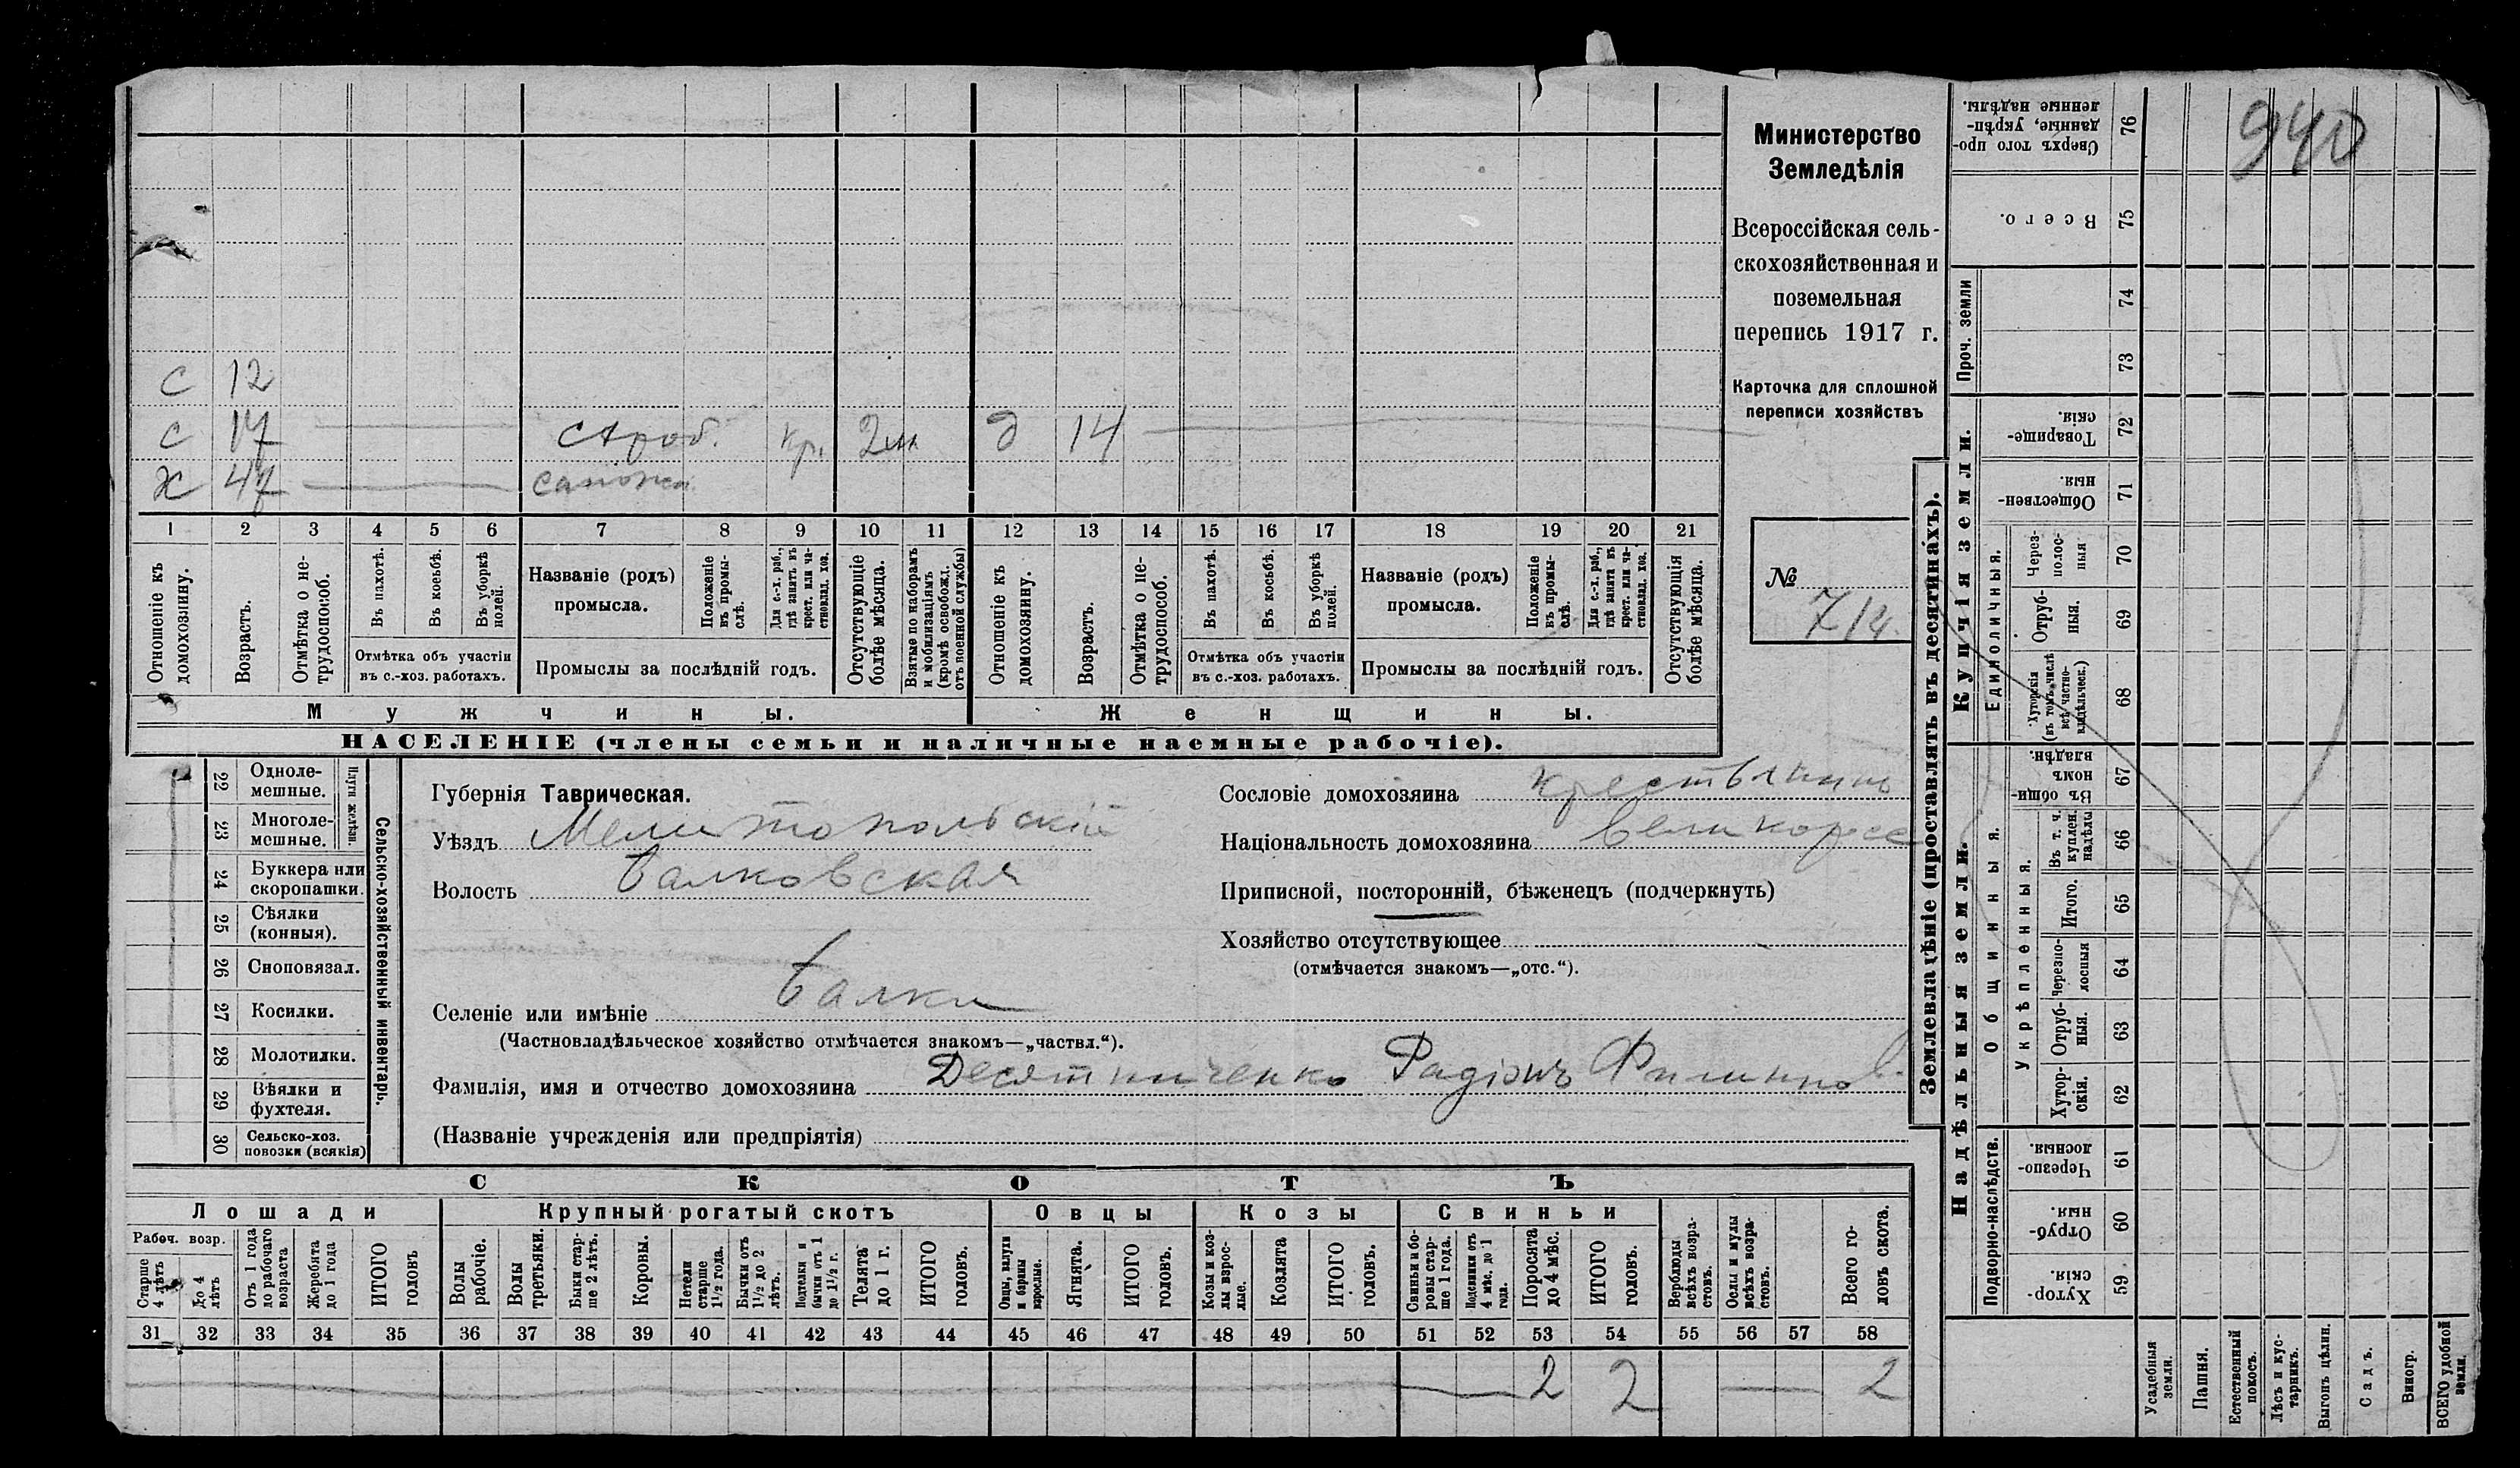 940
Министерство
Земледѣлія
Всероссійская сель-
скохозяйственная и
поземельная
перепись 1917 г.
Карточка для сплошной
переписи хозяйствъ
№
714
С 12
С 17 Кр. 2м. д 14
Х 47
1 2 3 4 5 6 7 8 9 10 11 12 13 14 15 16 17 18 19 20 21
Отношеніе къ домохозяину.
Возрастъ.
Отмѣтка о не-трудоспособ.
Въ пахотѣ.
Въ косьбѣ.
Въ уборкѣ полей.
Отмѣтка объ участіи
въ с.-хоз. работахъ.
Названіе (родъ)
промысла.
Положеніе въ промы-слѣ.
Для с.-х. раб., гдѣ занятъ въ крест. или ча-стновлад. хоз.
Промыслы за послѣдній годъ.
Отсутствующіе болѣе мѣсяца.
Взятые по наборамъ и мобилизаціямъ (кромѣ освобожд. отъ военной службы)
Отношеніе къ домохозяину.
Возрастъ.
Отмѣтка о не-трудоспособ.
Въ пахотѣ.
Въ косьбѣ.
Въ уборкѣ полей.
Отмѣтка объ участіи
въ с.-хоз. работахъ.
Названіе (родъ)
промысла.
Положеніе въ промы-слѣ.
Для с.-х. раб., гдѣ занята въ крест. или ча-стновлад. хоз.
Промыслы за послѣдній годъ.
Отсутствующія болѣе мѣсяца.
Мужчины.
Женщины.
НАСЕЛЕНІЕ (члены семьи и наличные наемные рабочіе).
Сельско-хозяйственный инвентарь.
Плуги желѣзн.
22 Одноле-мешные.
23 Многоле-мешные.
24 Буккера или скоропашки.
25 Сѣялки (конныя).
26 Сноповязал.
27 Косилки.
28 Молотилки.
29 Вѣялки и фухтеля.
30 Сельско-хоз. повозки (всякія)
Губернія Таврическая.
Уѣздъ Мелитопольскій
Волость Балковская
Селеніе или имѣніе Балки
(Частновладѣльческое хозяйство отмѣчается знакомъ—„частвл.“).
Фамилія, имя и отчество домохозяина Десятниченко Радіонъ Филиппов.
(Названіе учрежденія или предпріятія)
Сословіе домохозяина крестьянинъ
Національность домохозяина великоросс
Приписной, посторонній, бѣженецъ (подчеркнуть)
Хозяйство отсутствующее
(отмѣчается знакомъ—„отс.“).
СКОТЪ
Лошади
Крупный рогатый скотъ
Овцы
Козы
Свиньи
Рабоч. возр.
Старше 4 лѣтъ
До 4 лѣтъ
Отъ 1 года до рабочаго возраста
Жеребята до 1 года
ИТОГО головъ
Волы рабочіе.
Волы третьяки.
Быки стар-ше 2 лѣтъ.
Коровы.
Нетели старше 1½ года.
Бычки отъ 1½ до 2 лѣтъ.
Подтелки и бычки отъ 1 до 1½ г.
Телята до 1 г.
ИТОГО головъ.
Овцы, валухи и бараны взрослые.
Ягнята.
ИТОГО головъ.
Козы и коз-лы взрос-лые.
Козлята
ИТОГО головъ.
Свиньи и бо-ровы стар-ше 1 года.
Подсвинки отъ 4 мѣс. до 1 года.
Поросята до 4 мѣс.
ИТОГО головъ.
Верблюды всѣхъ возра-стовъ.
Ослы и мулы всѣхъ возра-стовъ.
Всего го-ловъ скота.
31 32 33 34 35 36 37 38 39 40 41 42 43 44 45 46 47 48 49 50 51 52 53 54 55 56 57 58
2 2 2
Землевладѣніе (проставлять въ десятинахъ).
Надѣльныя земли.
Купчія земли.
Проч. земли
Подворно-наслѣдств.
Общинныя.
Укрѣпленныя.
Единоличныя.
76 Сверхъ того про-данные, укрѣп-ленные надѣлы.
75 Всего.
74
73
72 Товарище-скія.
71 Обществен-ныя.
70 Через-полос-ныя
69 Отруб-ныя.
68 Хуторскія (въ томъ числѣ всѣ частно-владѣльческ.)
67 Въ общи-номъ владѣн.
66 Въ т. ч. куплен. надѣлы
65 Итого.
64 Черезпо-лосныя
63 Отруб-ныя.
62 Хутор-скія.
61 Черезпо-лосныя
60 Отруб-ныя.
59 Хутор-скія.
Усадебныя земли.
Пашня.
Естественный покосъ.
Лѣсъ и кус-тарникъ.
Выгонъ цѣлин.
Садъ.
Виногр.
ВСЕГО удобной земли.